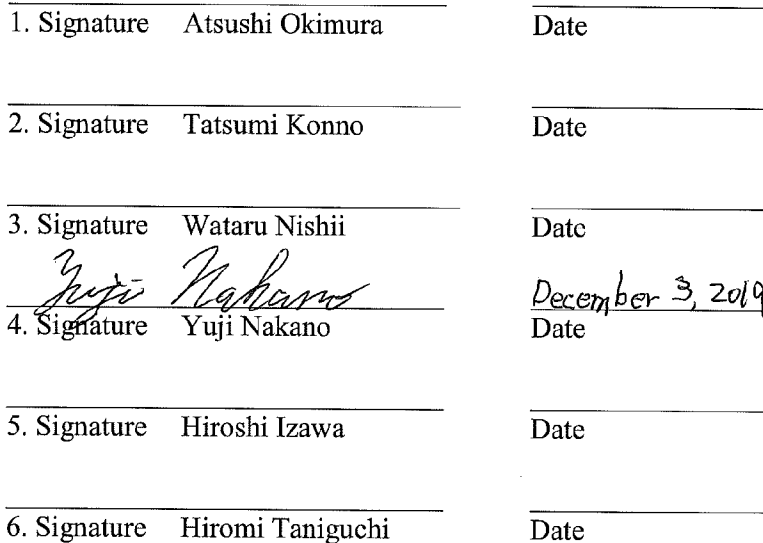 1. Signature Atsushi Okimura Date
2. Signature Tatsumi Konno Date
3. Signature Wataru Nishii Date
Yuji Nakano December 3, 2019
4. Signature Yuji Nakano Date
5. Signature Hiroshi Izawa Date
6. Signature Hiromi Taniguchi Date